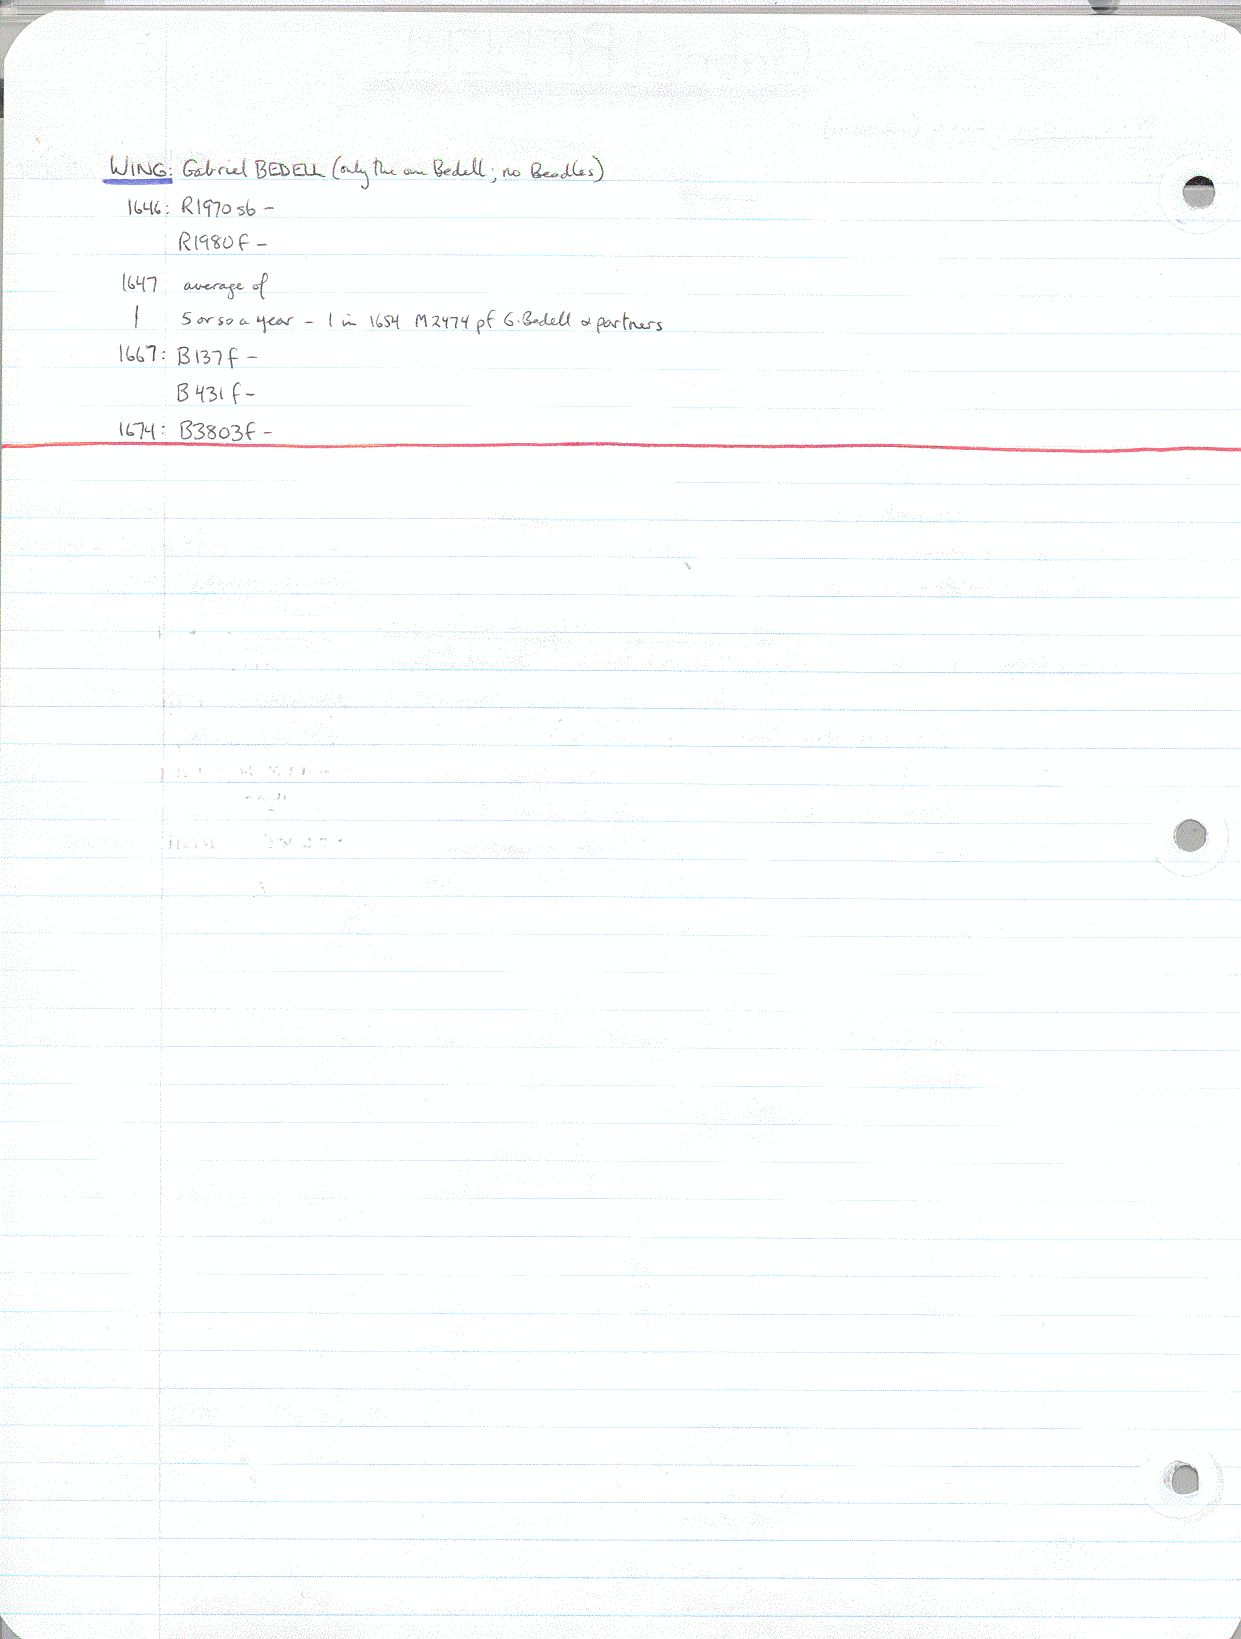 WING: Gabriel BEDELL (only the one Bedell; no Beadles)
1646: R1970 sb -
R1980 f -
1647 average of
| 5 or so a year - 1 in 1654 M2474 pf G. Bedell & partners
1667: B137 f -
B431 f -
1674: B3803f -